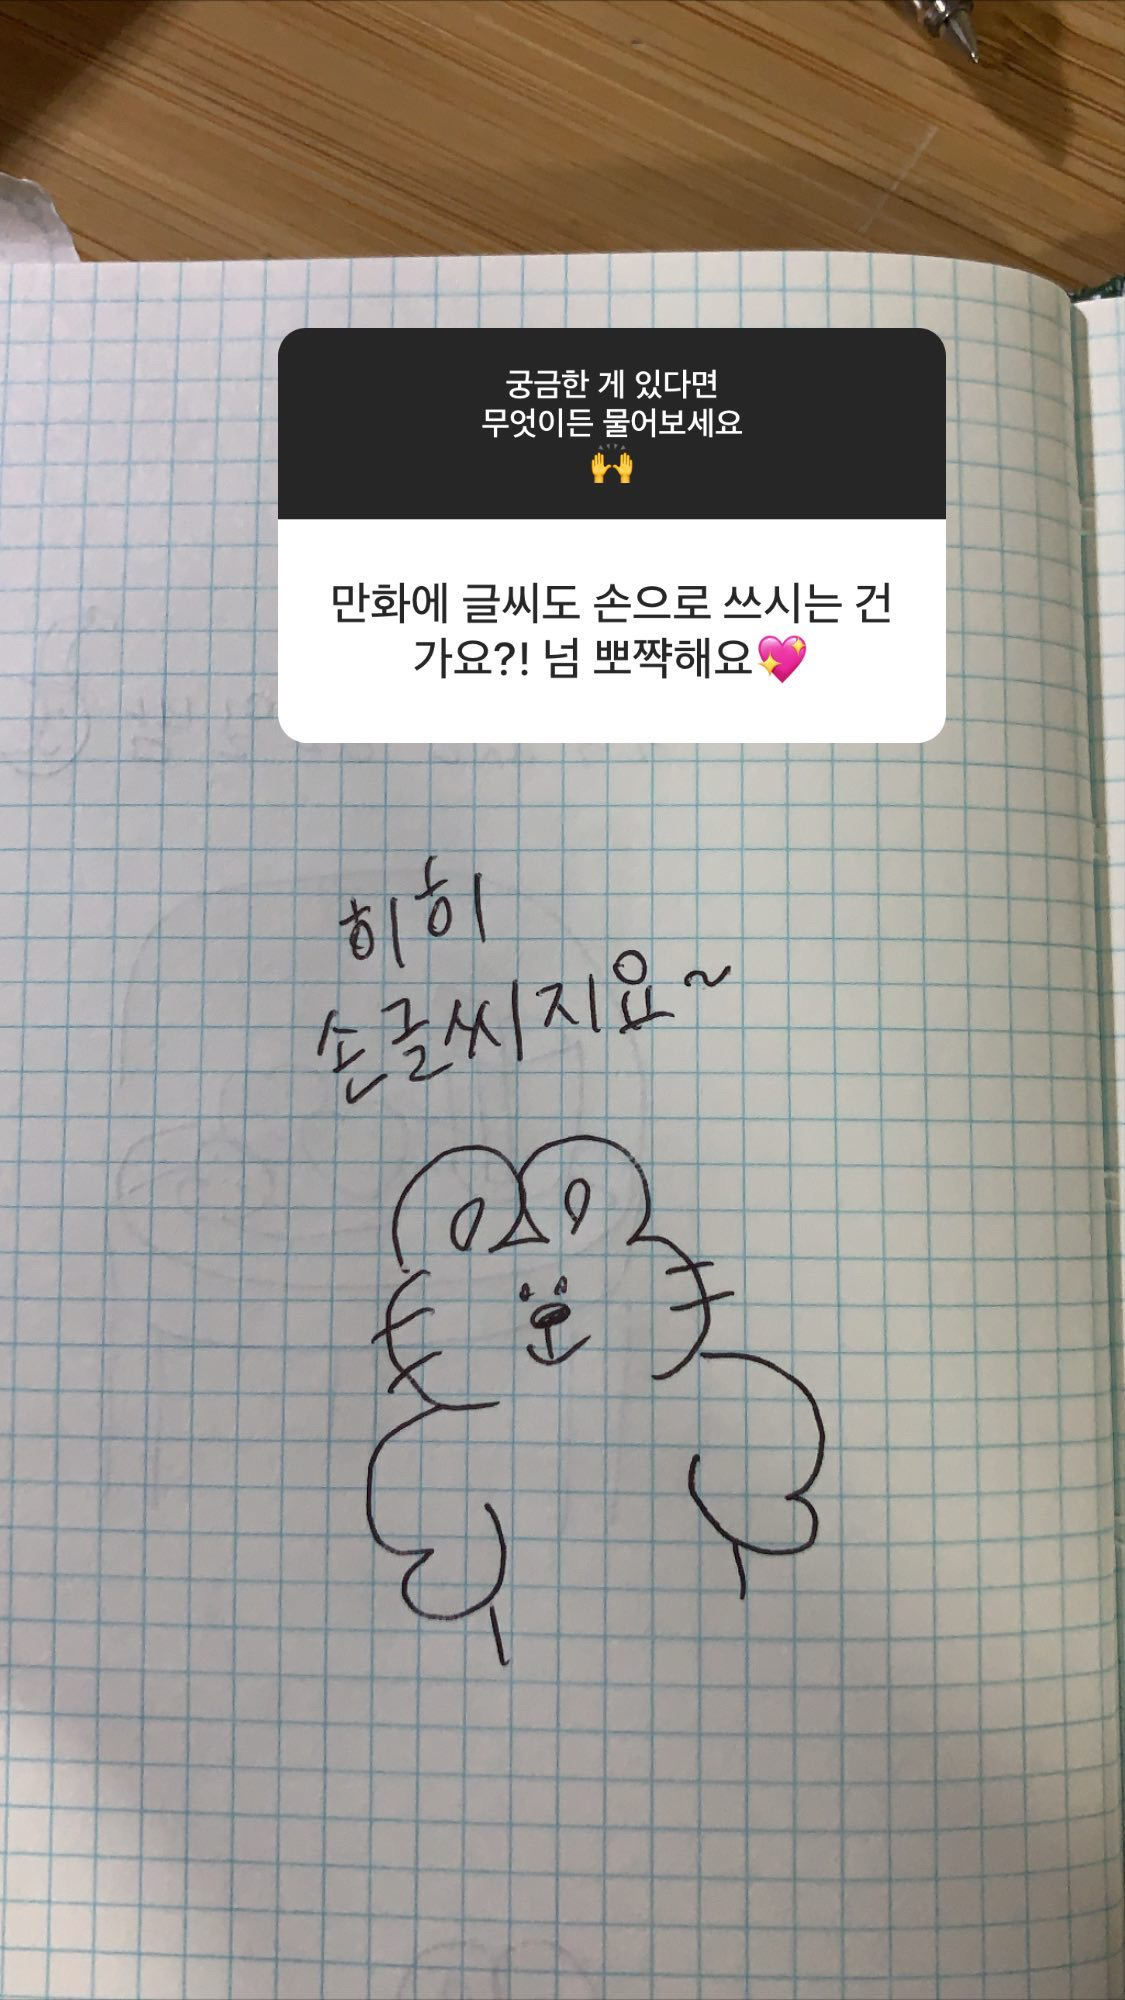 궁금한 게 있다면
무엇이든 물어보세요
🙌
만화에 글씨도 손으로 쓰시는 건
가요?! 넘 뽀쨕해요💖
히히
손글씨지요~